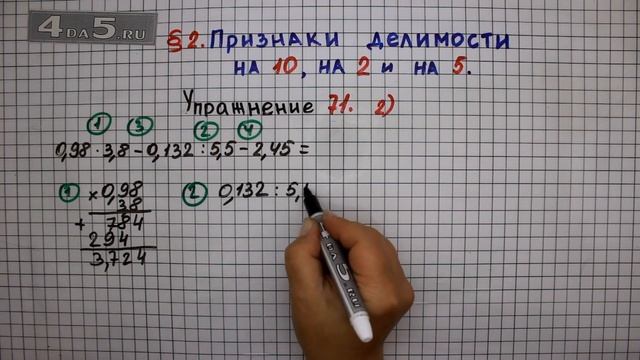 4DA5.RU
§2. Признаки делимости
на 10, на 2 и на 5.
Упражнение 71. 2)
1 3 2 4
0,98 · 3,8 - 0,132 : 5,5 - 2,45 =
1 × 0,98
3,8
+ 784
294
3,724
2 0,132 : 5,
4DA5.RU